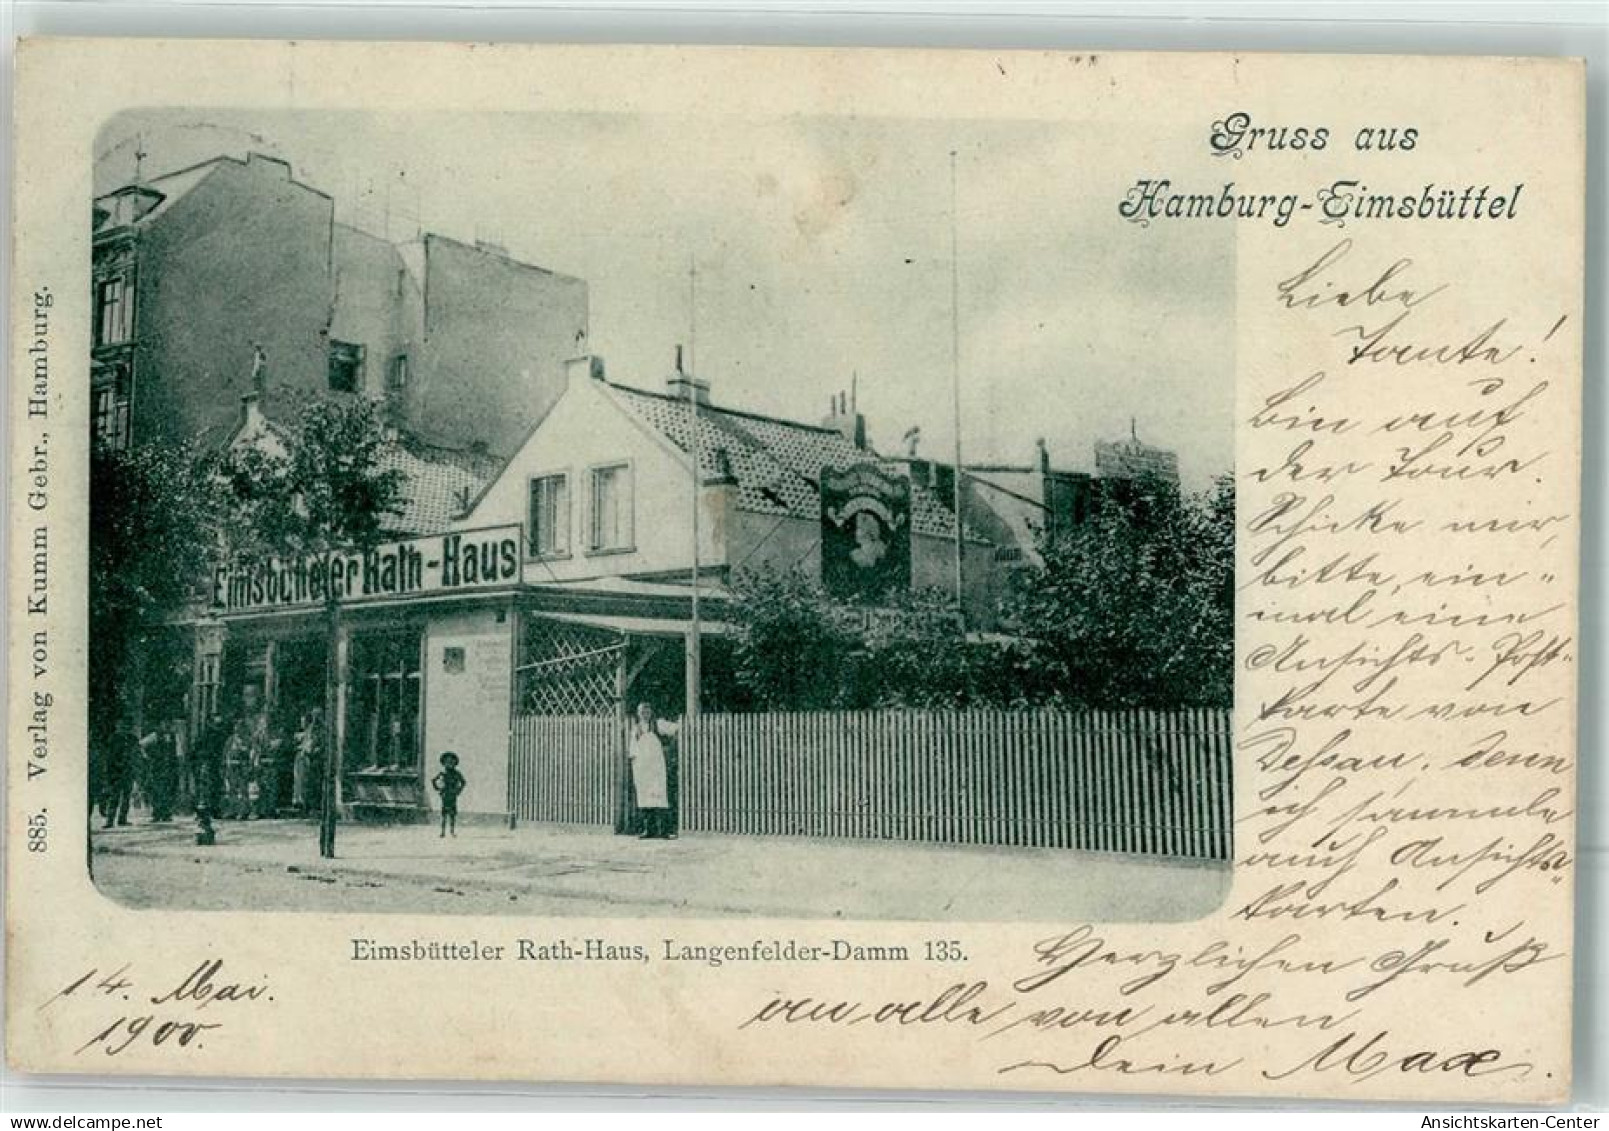 Gruss aus
Hamburg-Eimsbüttel
Liebe
Tante!
Bin auf
der Tour.
Schicke mir,
bitte, ein=
mal eine
Ansichts-Post=
karte von
Dessau. Denn
ich sammle
auch Ansichts=
karten.
Herzlichen Gruß
an alle von allen
Dein Max.
Eimsbütteler Rath-Haus
Eimsbütteler Rath-Haus, Langenfelder-Damm 135.
14. Mai.
1900.
885. Verlag von Kumm Gebr., Hamburg.
Ansichtskarten-Center